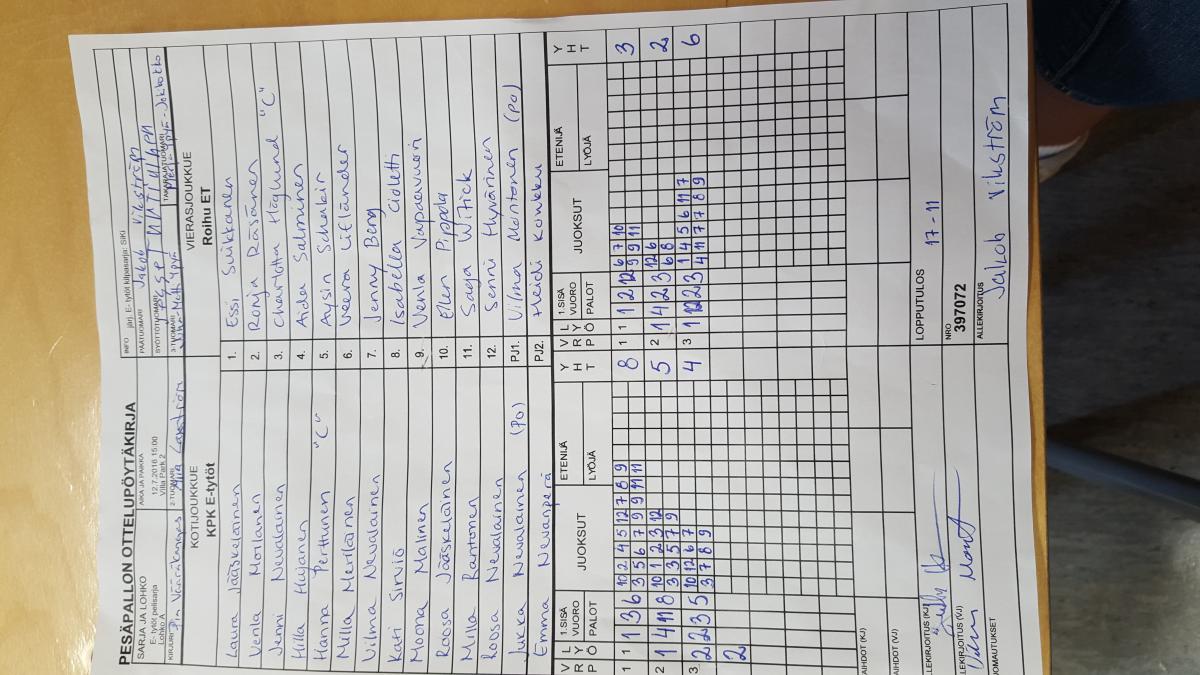 PESÄPALLON OTTELUPÖYTÄKIRJA
SARJA JA LOHKO
E- tytöt pelisarja
Lohko A
AIKA JA PAIKKA
12.7.2016 15:00
Villa Park 2
INFO järj. E- tytöt kilpasarja: SiKi
PÄÄTUOMARI Jakob Vikström
SYÖTTÖTUOMARI
KIRJURI Pia Vääräkangas
2-TUOMARI
3-TUOMARI
TAKARAJATUOMARI
KOTIJOUKKUE
KPK E-tytöt
VIERASJOUKKUE
Roihu ET
Laura Jääskeläinen 1. Essi Suikkanen
Venla Moilanen 2. Ronja Räsänen
Jenni Nevalainen 3. Charlotta Höglund "C"
Hilla Hujanen 4. Aida Salminen
Hanna Perttunen "C" 5. Aysin Schakir
Milla Meriläinen 6. Veera Lifländer
Vilma Nevalainen 7. Jenny Berg
Kati Sirviö 8. Isabella Cioletti
Moona Malinen 9. Venla Vapaavuori
Roosa Jääskeläinen 10. Ellen Pippola
Milla Rantonen 11. Saga Witick
Roosa Nevalainen 12. Senni Hyvärinen
Jukka Nevalainen (Po) PJ1. Vilma Montonen (Po)
Emma Nevanperä PJ2. Heidi Konkku
V R P L Y Ö 1.SISÄ VUORO PALOT JUOKSUT ETENIJÄ LYÖJÄ Y H T V R P L Y Ö 1.SISÄ VUORO PALOT JUOKSUT ETENIJÄ LYÖJÄ Y H T
1 1 1 3 6 10 2 4 5 12 7 8 9 8 1 1 1 2 12 6 7 10 3
3 5 6 7 9 9 11 11 9 9 11
2 1 4 11 8 10 1 2 3 12 5 2 1 4 2 3 12 6 2
3 3 5 7 9 6 8
3 2 2 3 5 10 12 6 7 4 3 1 12 2 3 1 4 5 6 11 7 6
3 7 8 9 4 11 7 7 8 9
2
VAIHDOT (KJ)
VAIHDOT (VJ)
LOPPUTULOS 17 - 11
ALLEKIRJOITUS (KJ)
NRO
397072
ALLEKIRJOITUS (VJ)
ALLEKIRJOITUS
Jakob Vikström
HUOMAUTUKSET